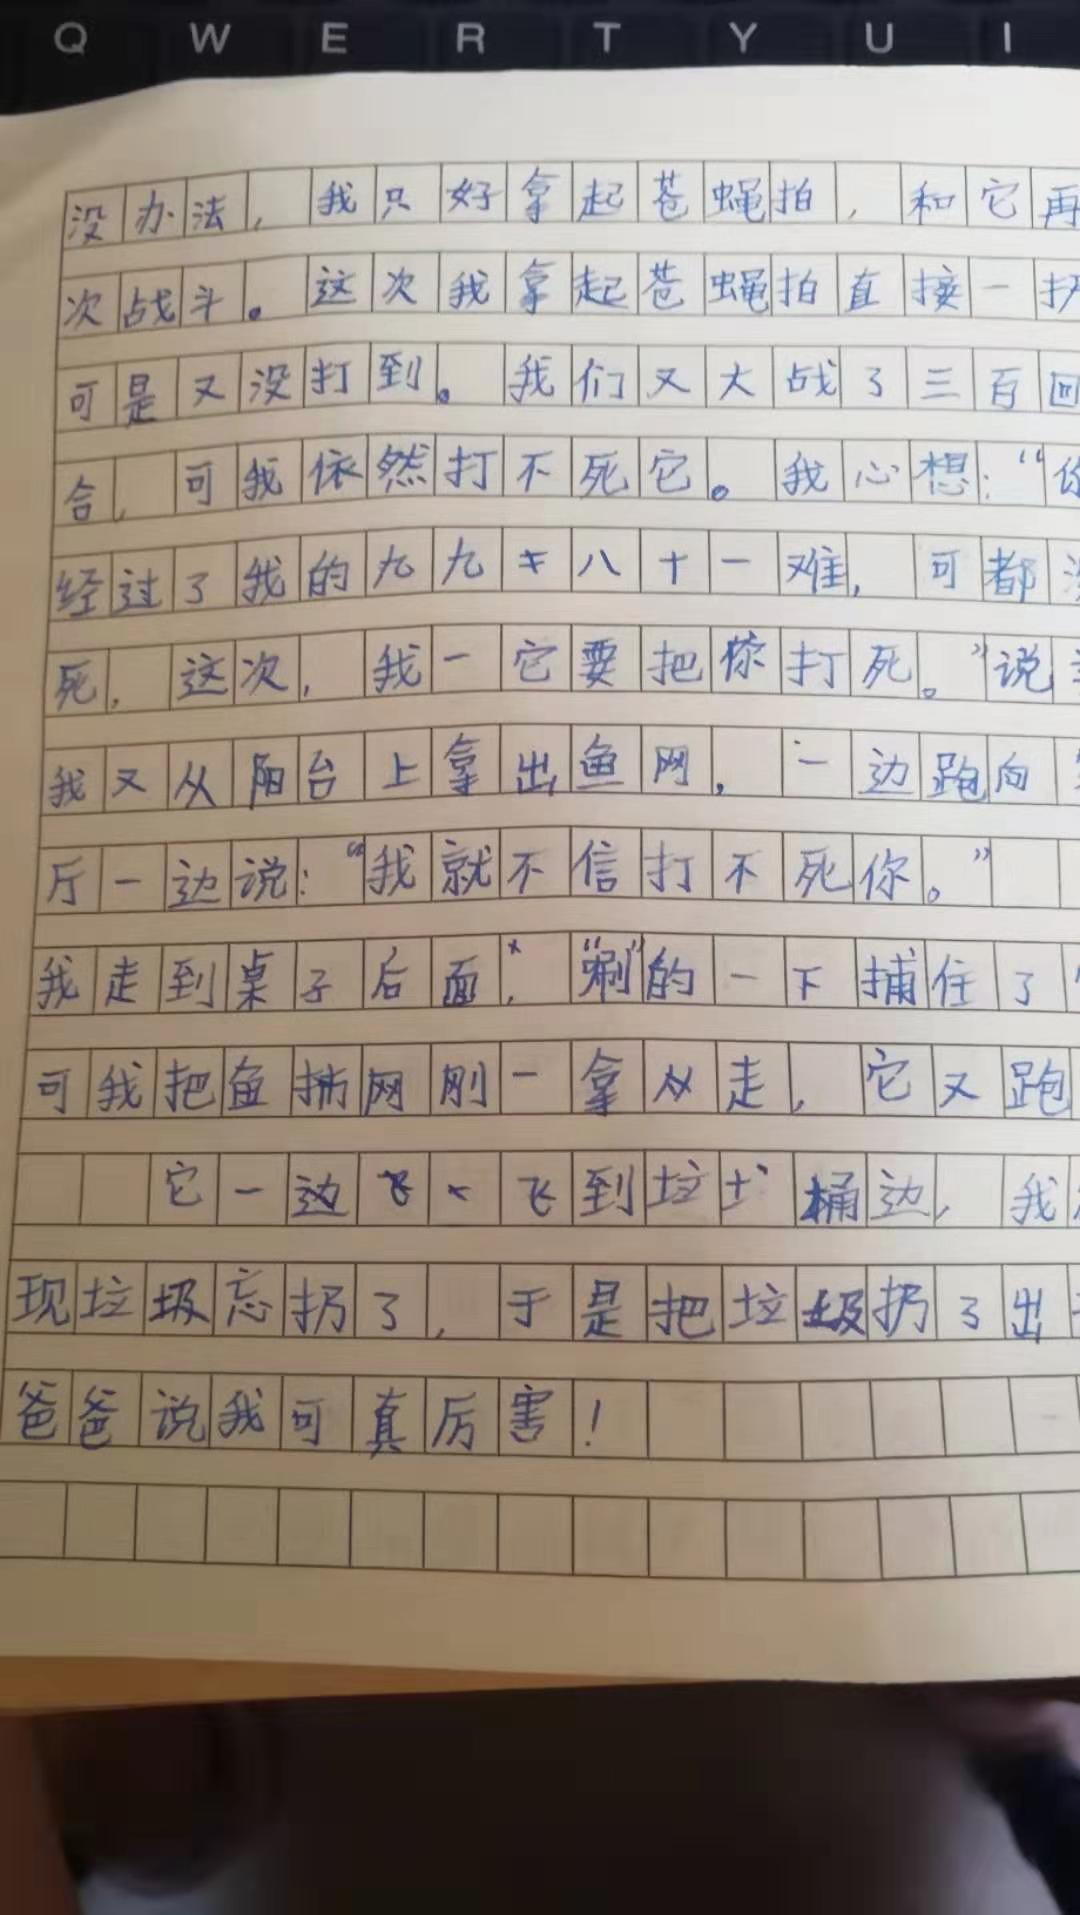 Q W E R T Y U I
没办法，我只好拿起苍蝇拍，和它再
次战斗。这次我拿起苍蝇拍直接一扔
可是又没打到。我们又大战了三百回
合，可我依然打不死它。我心想：“你
经过了我的九九 八十一难，可都没
死，这次，我一它要把你打死。”说
我又从阳台上拿出鱼网，一边跑向
厅一边说：“我就不信打不死你。”
我走到桌子后面，“唰”的一下捕住了
可我把鱼 网刚一拿 走，它又跑
它一边飞 飞到垃 桶边，我
现垃圾忘扔了，于是把垃圾扔了出
爸爸说我可真厉害！